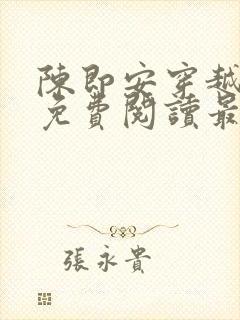 陳即安穿越
免費閱讀最
張永貴